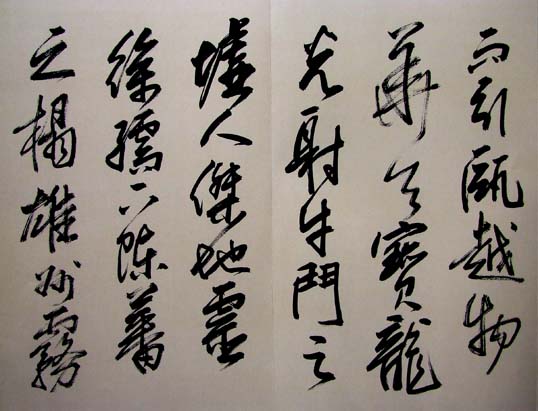 而引甌越物
華天寶龍
光射牛鬥之
墟人傑地靈
徐孺下陳蕃
之榻雄州霧